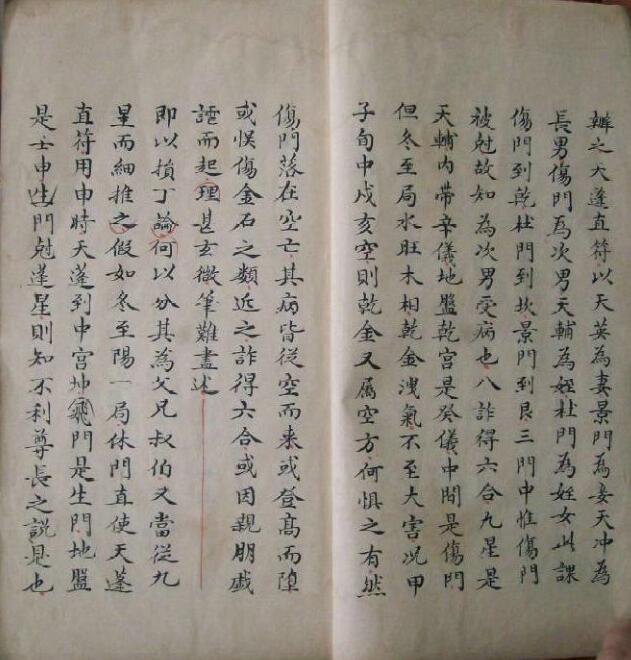 辨之天蓬直符以天英為妻景門為妾天冲為
長男傷門為次男天輔為姪杜門為姪女此課
傷門到乾杜門到坎景門到艮三門中惟傷門
被尅故知為次男受病也八詐得六合九星是
天輔內帶辛儀地盤乾宮是癸儀中間是傷門
但冬至局水旺木相乾金洩氣不至大害况甲
子旬中戍亥空則乾金又屬空方何惧之有然
傷門落在空亡其病皆從空而来或登高而墮
或悮傷金石之類近之詐得六合或因親朋戯
謔而起理甚玄微筆難盡述
即以損丁論何以分其為父兄叔伯又當從九
星而細推之假如冬至陽一局休門直使天蓬
直符用申時天蓬到中宮坤飛門是生門地盤
是士申生門尅蓬星則知不利尊長之說是也